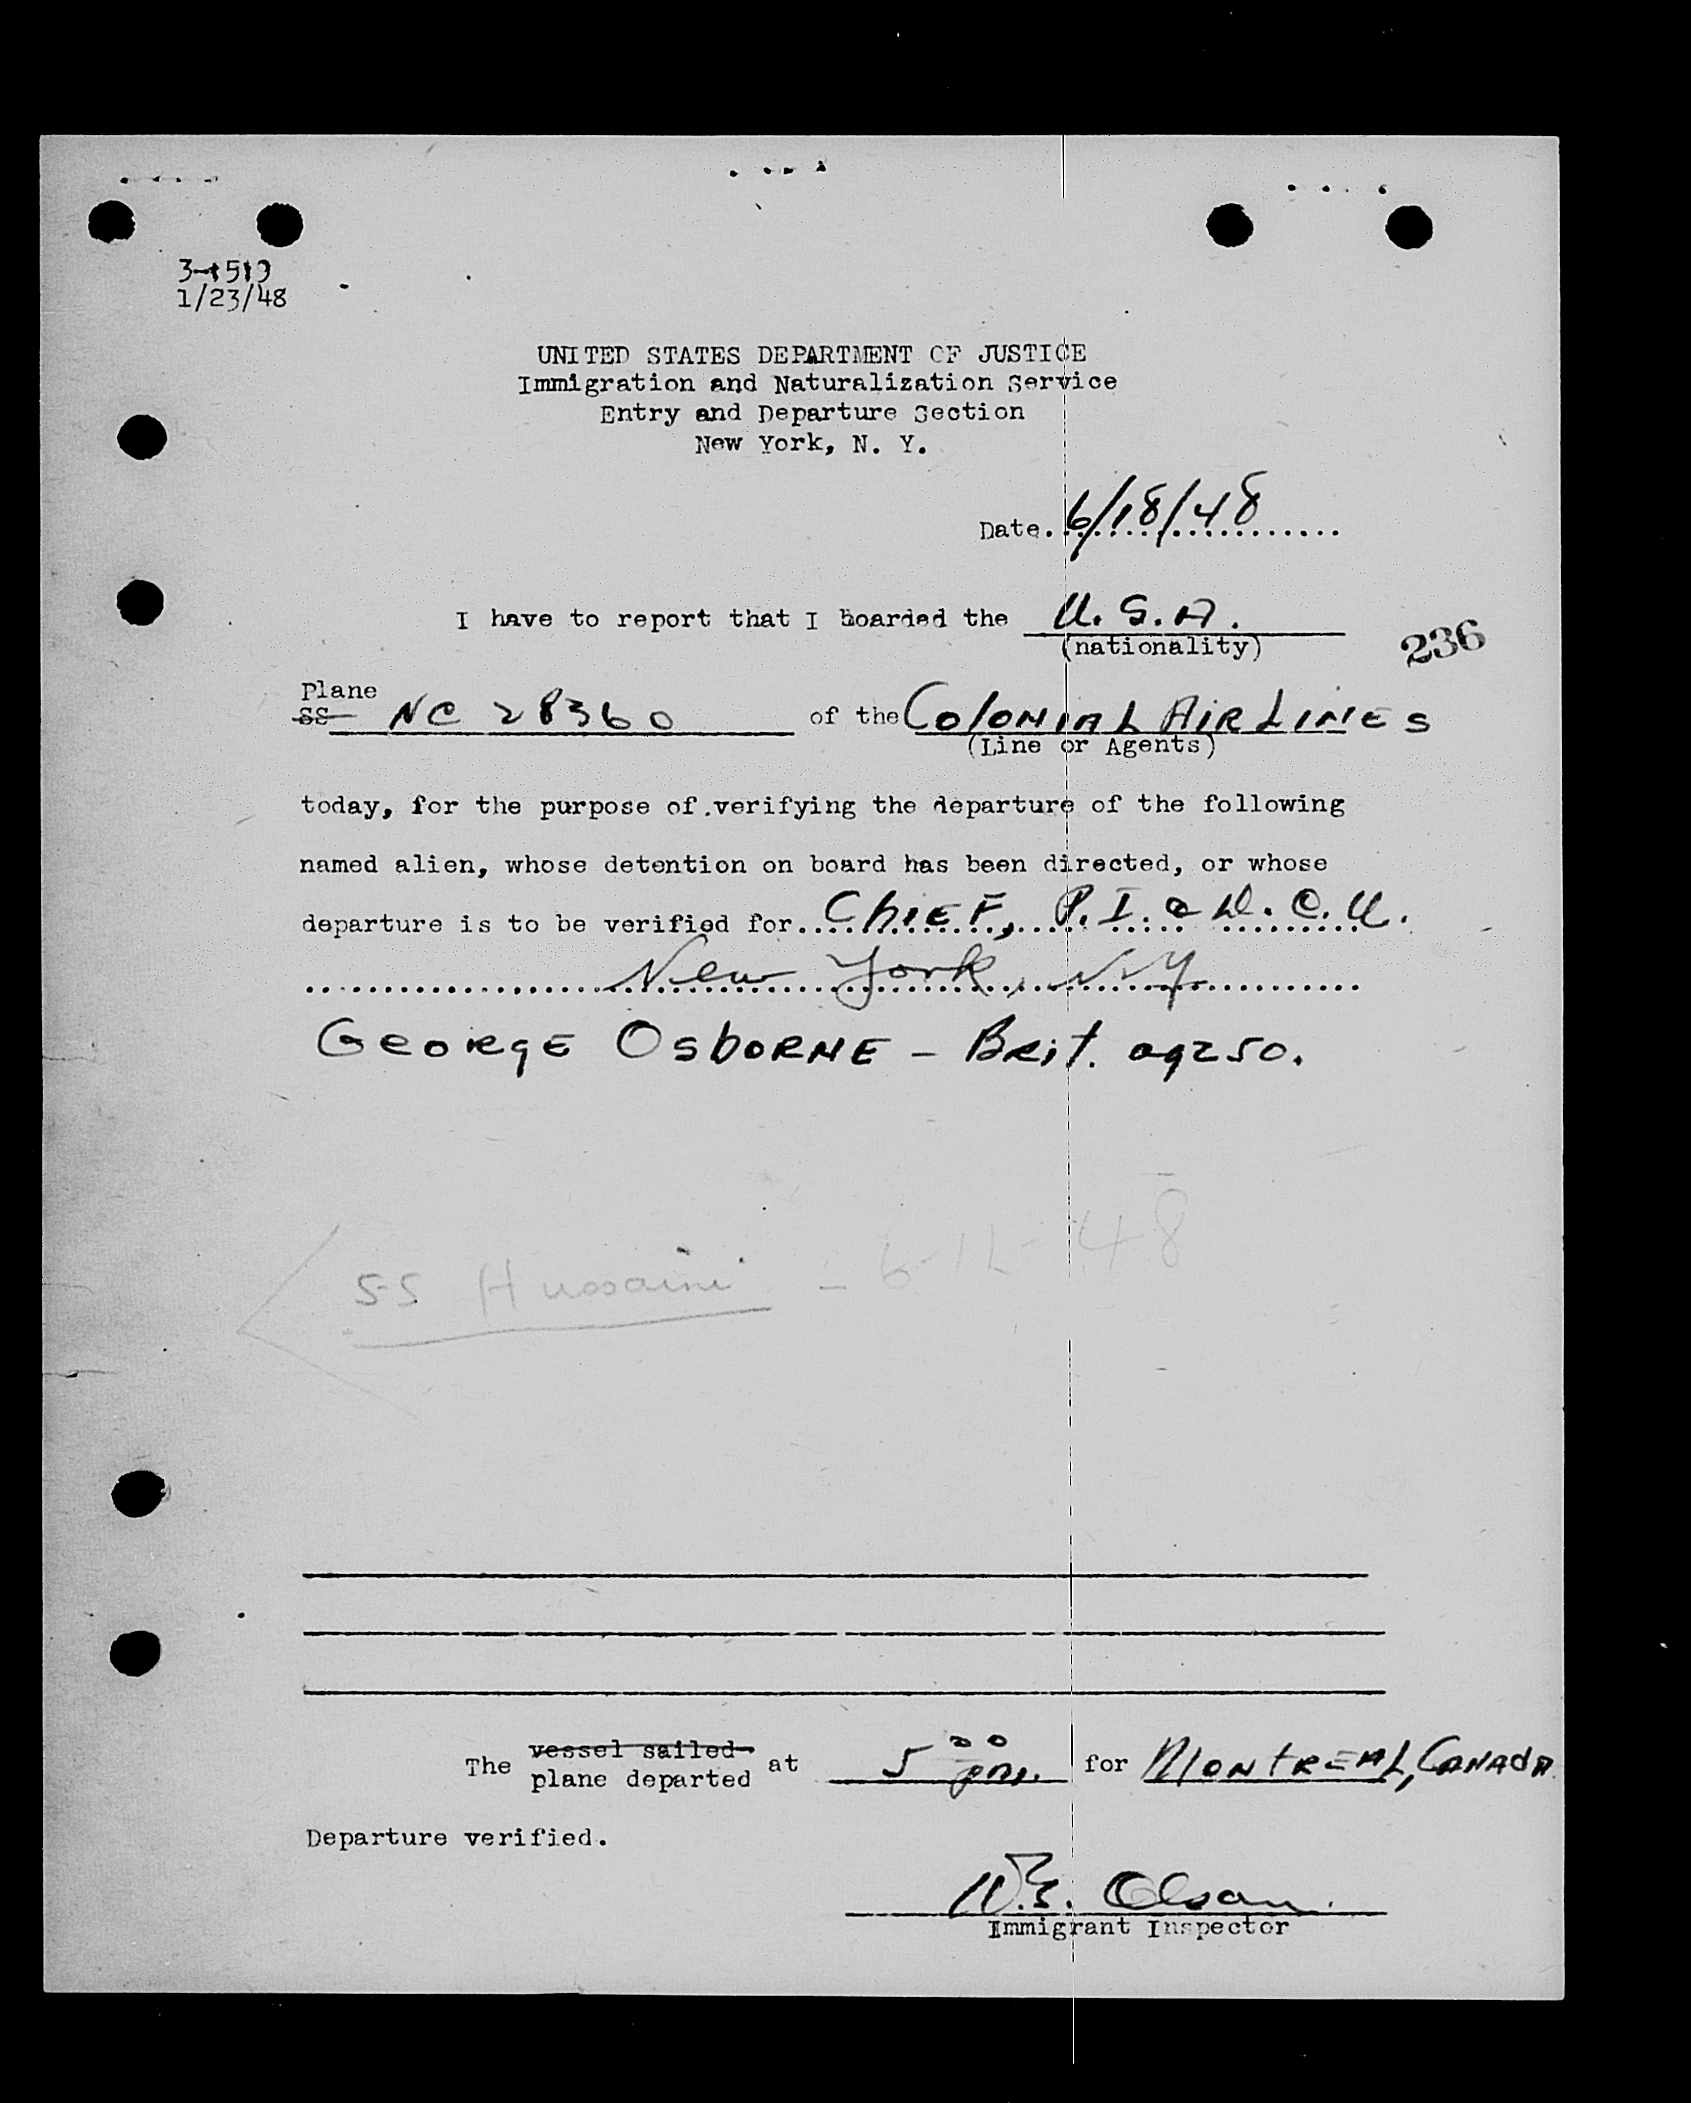 1/23/48
UNITED STATES DEPARTMENT OF JUSTICE
Immigration and Naturalization Service
Entry and Departure Section
New York, N. Y.
Date. 6/18/48
I have to report that I boarded the U.S.A.
(nationality)
236
Plane
SS NC 28360 of the Colonial Airlines
(Line or Agents)
today, for the purpose of verifying the departure of the following
named alien, whose detention on board has been directed, or whose
departure is to be verified for Chief, P.I. & D.C.U.
New York, NY
George Osborne - Brit. age 50.
SS Hussaini - 6-12-48
The vessel sailed at 5 00 pm. for Montreal, Canada
plane departed
Departure verified.
Olson
Immigrant Inspector